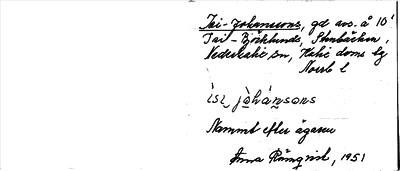 Isi-Johanssons, gd avs. å 10¹
Isi-Björklunds, Stenbäcken,
Nederkalix sn, Kalix doms lg
Norrb l
ìsi jòhánsons
Namnet efter ägaren
Anna Rönqvist, 1951